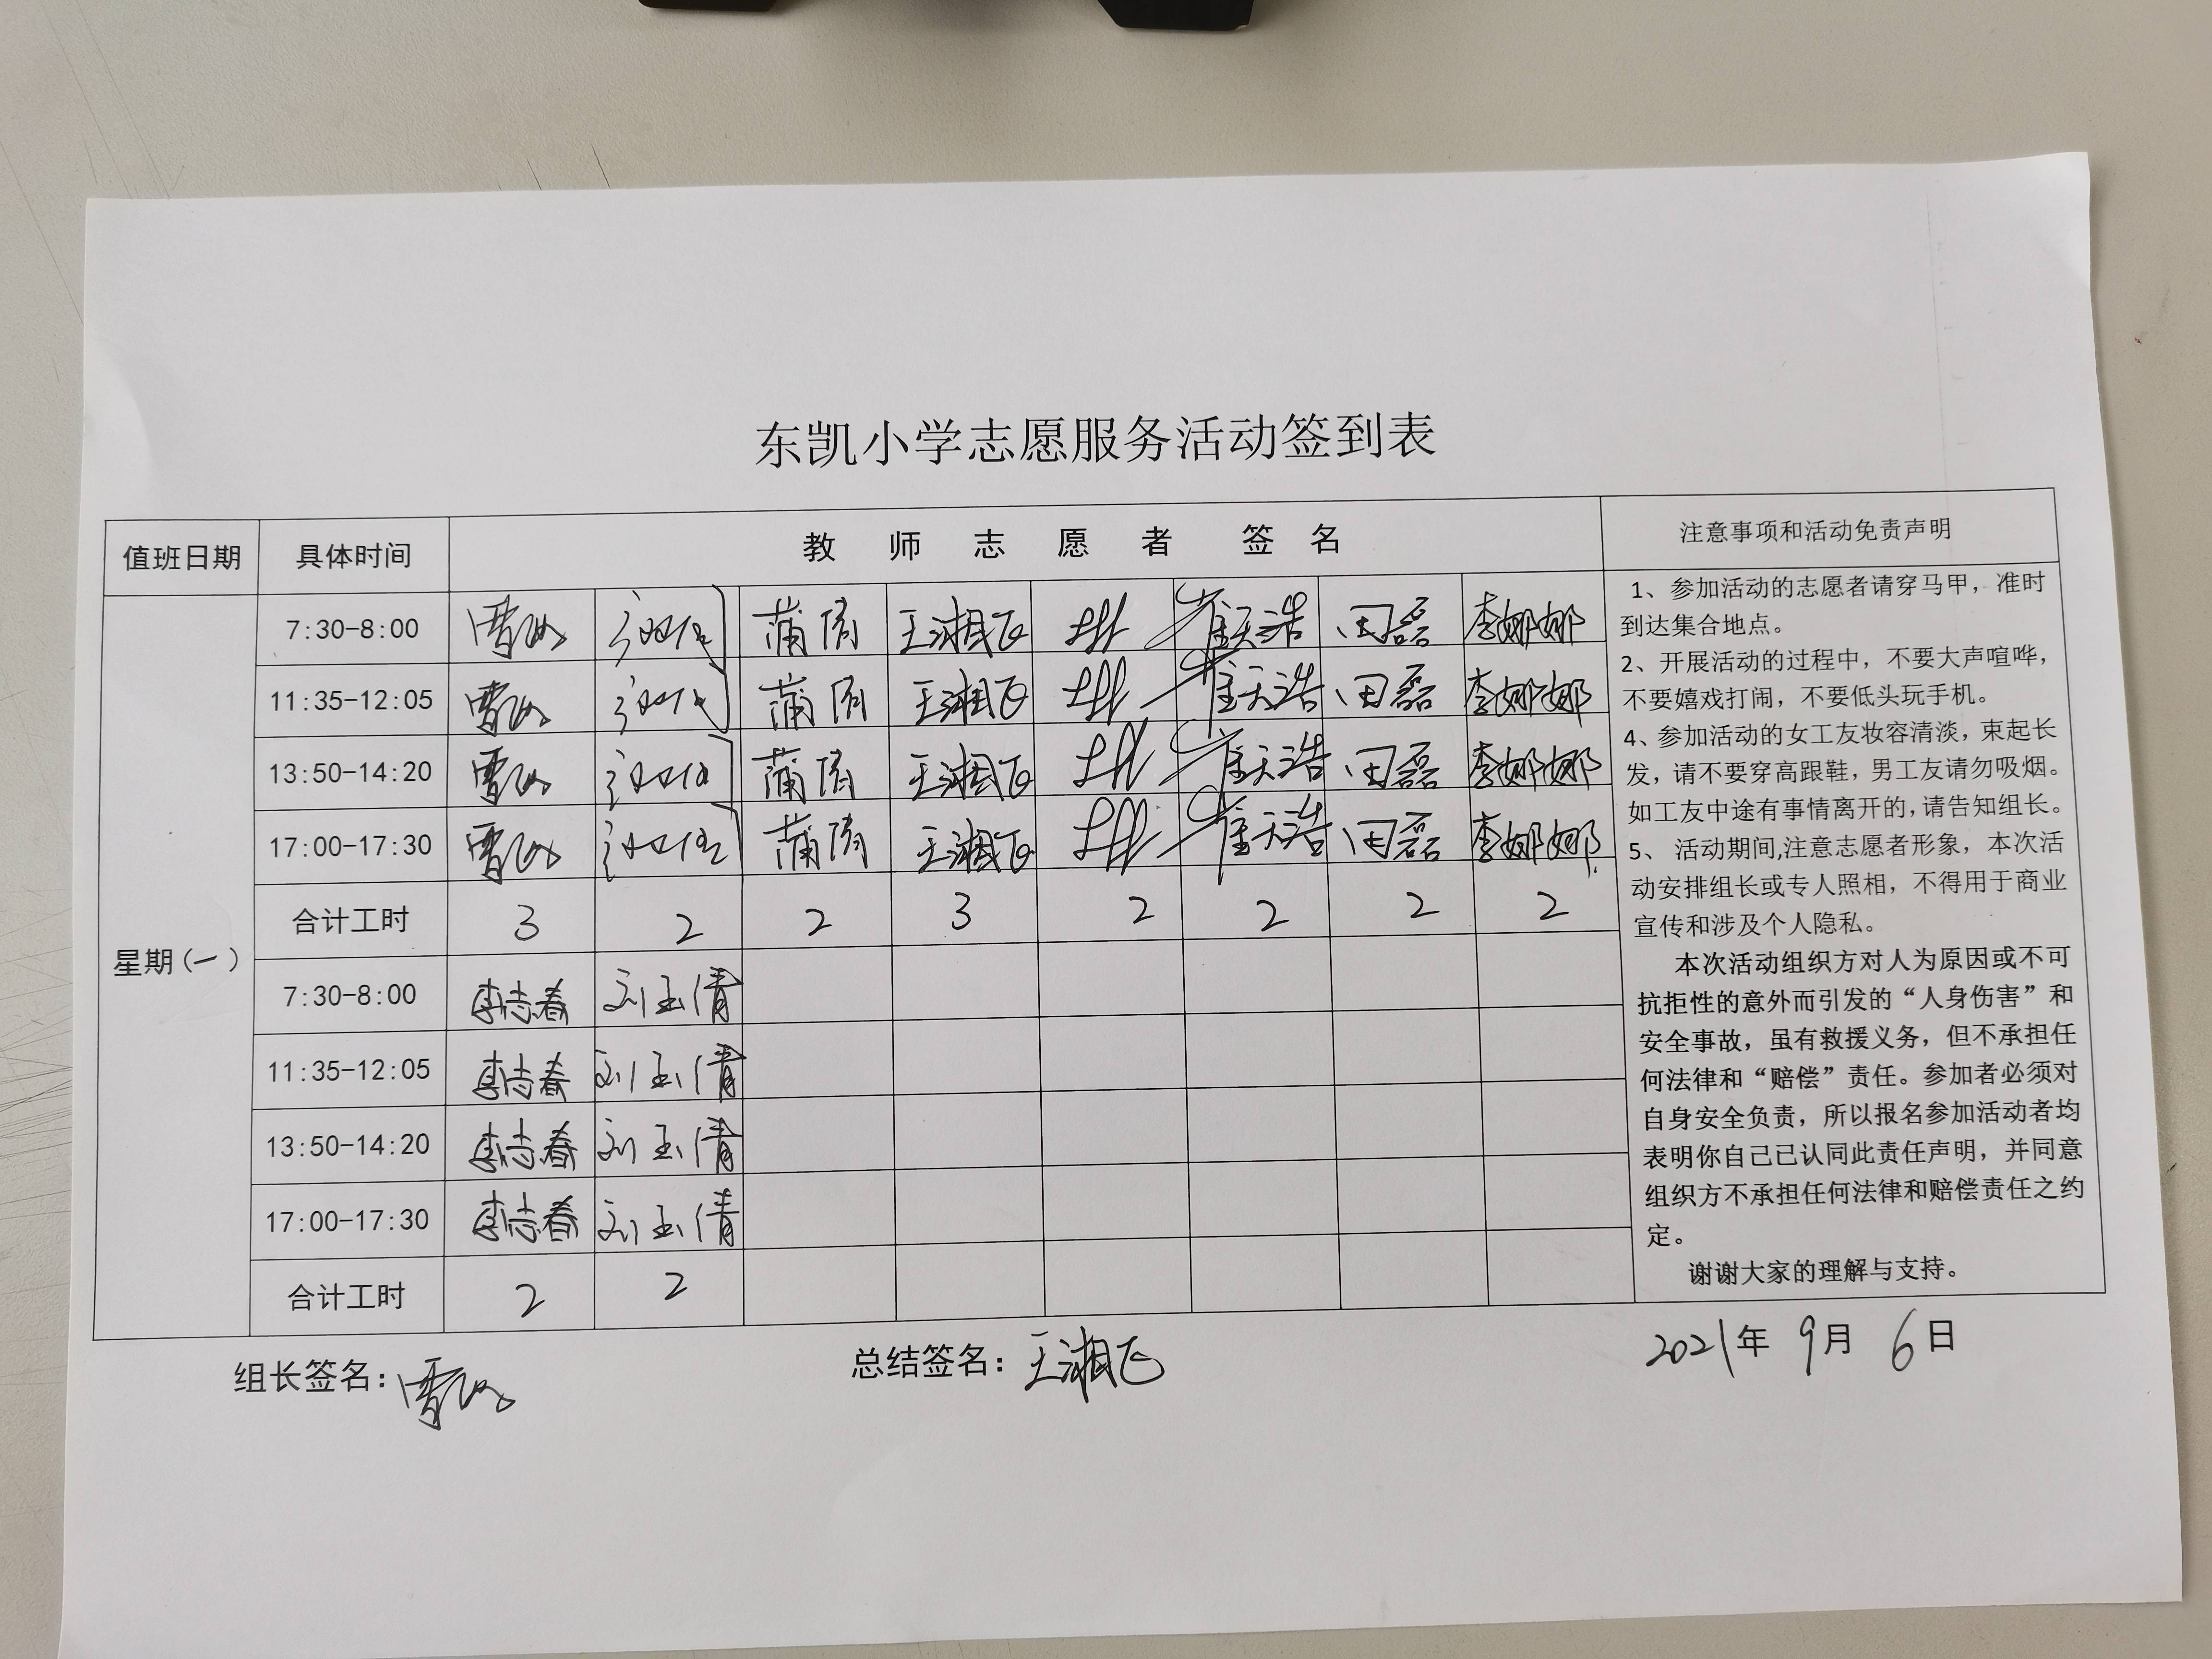 东凯小学志愿服务活动签到表
值班日期 具体时间 教师志愿者 签名 注意事项和活动免责声明
星期(一)
7:30-8:00 蒲 王湘飞 崔天浩 田磊 李娜娜
11:35-12:05 蒲 王湘飞 崔天浩 田磊 李娜娜
13:50-14:20 蒲 王湘飞 崔天浩 田磊 李娜娜
17:00-17:30 蒲 王湘飞 崔天浩 田磊 李娜娜
合计工时 3 2 2 3 2 2 2 2
7:30-8:00 李志春 刘玉倩
11:35-12:05 李志春 刘玉倩
13:50-14:20 李志春 刘玉倩
17:00-17:30 李志春 刘玉倩
合计工时 2 2
1、参加活动的志愿者请穿马甲，准时
到达集合地点。
2、开展活动的过程中，不要大声喧哗，
不要嬉戏打闹，不要低头玩手机。
4、参加活动的女工友妆容清淡，束起长
发，请不要穿高跟鞋，男工友请勿吸烟。
如工友中途有事情离开的,请告知组长。
5、 活动期间,注意志愿者形象，本次活
动安排组长或专人照相，不得用于商业
宣传和涉及个人隐私。
本次活动组织方对人为原因或不可
抗拒性的意外而引发的“人身伤害”和
安全事故，虽有救援义务，但不承担任
何法律和“赔偿”责任。参加者必须对
自身安全负责，所以报名参加活动者均
表明你自己已认同此责任声明，并同意
组织方不承担任何法律和赔偿责任之约
定。
谢谢大家的理解与支持。
组长签名： 总结签名：王湘飞 2021年 9月 6日